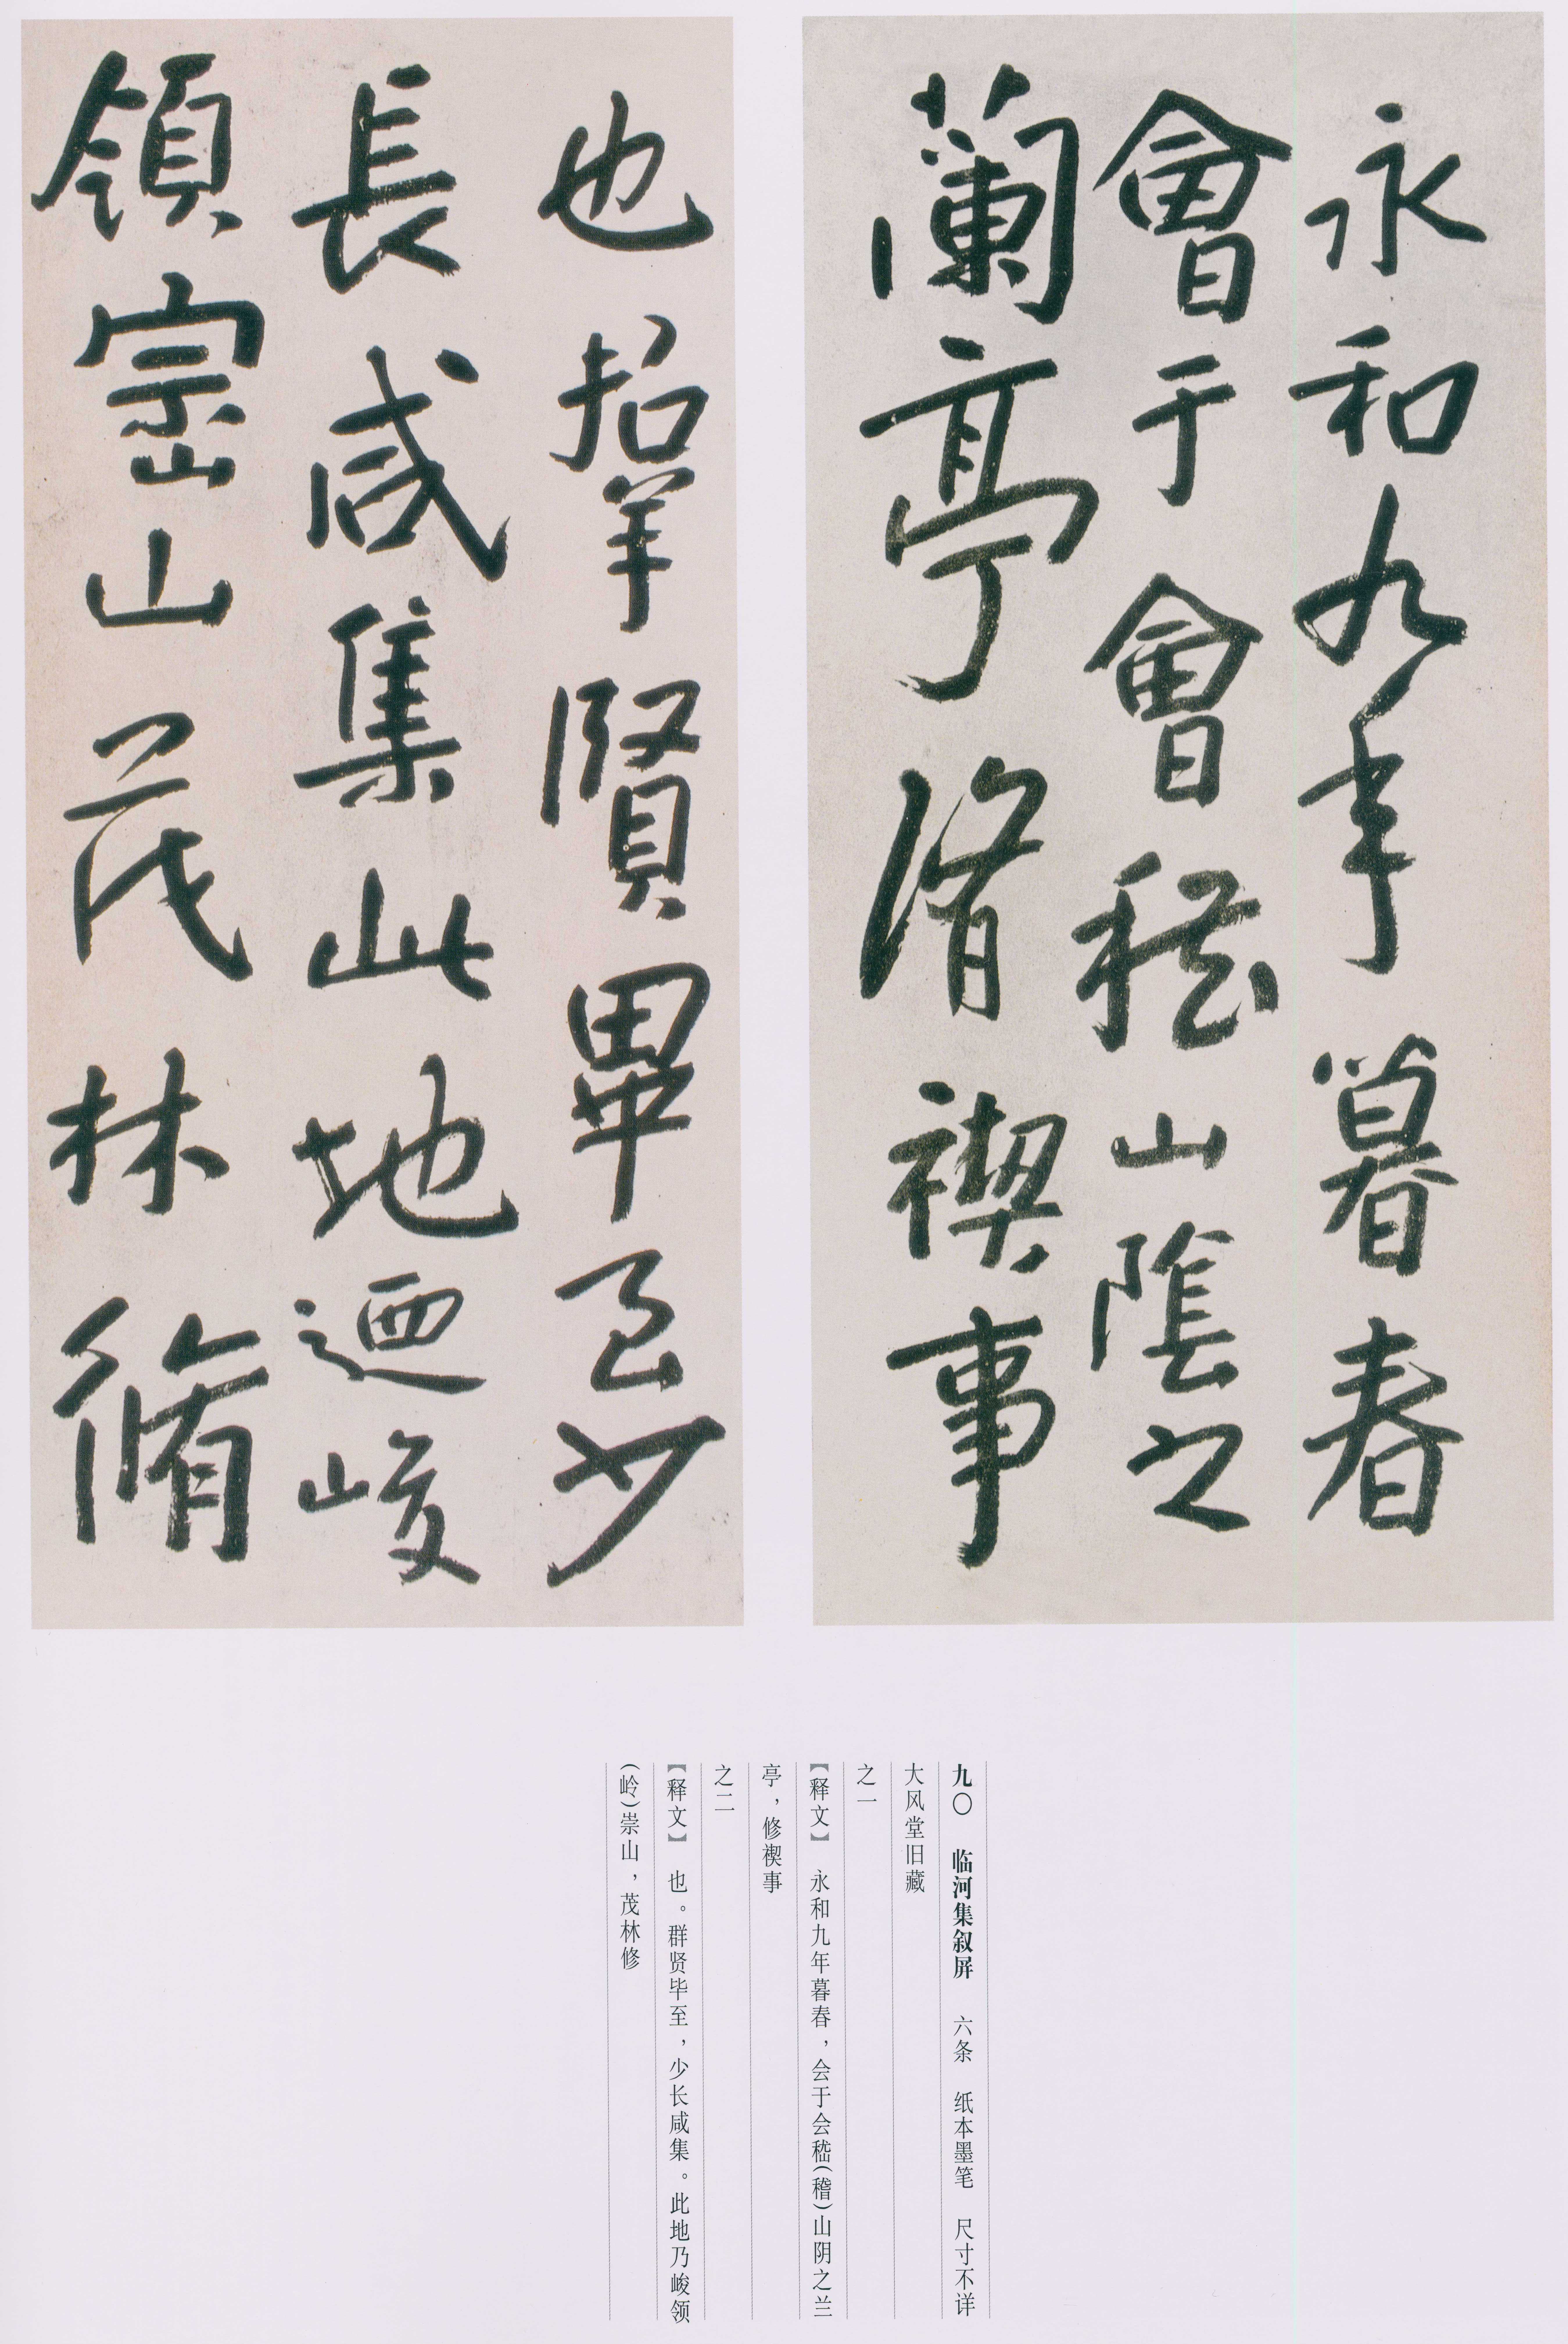 永和九年暮春
會于會嵇山陰之
蘭亭脩禊事
也羣賢畢至少
長咸集此地迺峻
領崇山茂林脩
九〇 临河集叙屏 六条 纸本墨笔 尺寸不详
大风堂旧藏
之一
【释文】 永和九年暮春，会于会嵇（稽）山阴之兰
亭，修禊事
之二
【释文】 也。群贤毕至，少长咸集。此地乃峻领
（岭）崇山，茂林修